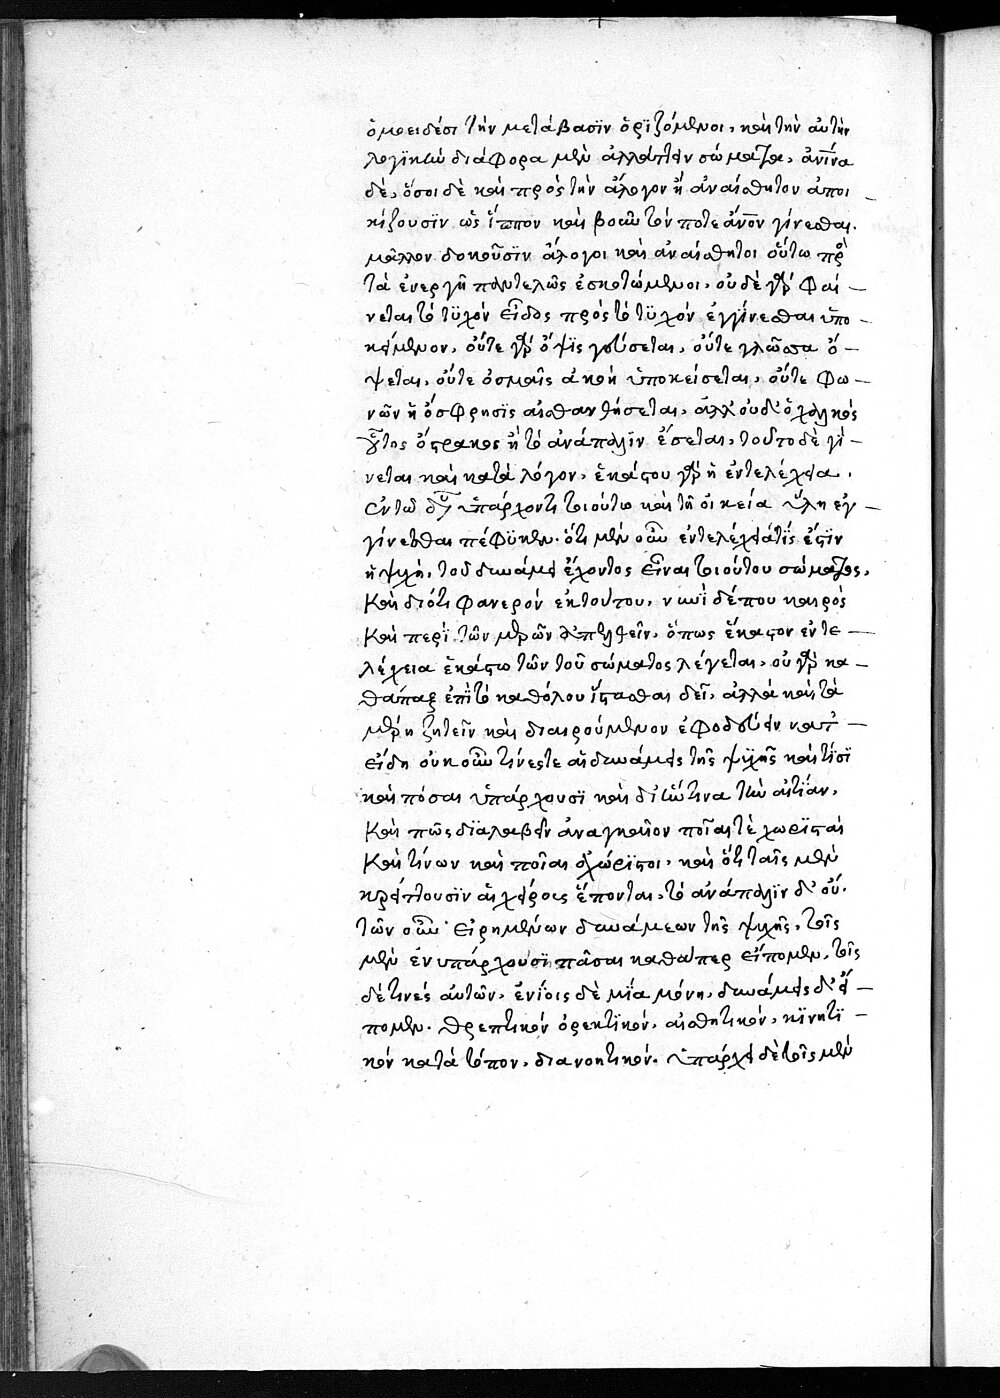 ὁμοειδέσι τὴν μετάβασϊν ὁρϊζόμενοι, καὶ τὴν αὐτὴν
λογϊκὴν διάφορα μὲν ἀλλάττειν σώματα, ἀνι̅να
δὲ, ὅσοι δὲ καὶ πρὸς τὴν ἄλογον ἢ ἀναίσθητον ἀποι
κίζουσϊν ὡς ἵππον καὶ βοῦν τόν ποτε ἄν̅ον γίνεσθαι.
μᾶλλον δοκοῦσϊν ἄλογοι καὶ ἀναίσθητοι οὕτω πρὸς
τὰ ἐνεργῆ παντελῶς ἐσκοτωμένοι, οὐδὲ γὰρ φαί –
νεται τὸ τϋχὸν εἶδος πρὸς τὸ τϋχὸν ἐγγίνεσθαι ὑπο –
κείμενον, οὔτε γὰρ ὄψϊς γεύσεται, οὔτε γλῶσσα ὄ –
ψεται, οὔτε ὀσμαῖς ἀκοὴ ὑποκείσεται, οὔτε φω –
νῶν ἡ ὄσφρησϊς αἰσθανθήσεται, ἀλλ' οὐδ' ὁ χαλκὸς
οὗτος ὄστρακος ἢ τὸ ἀνάπαλϊν ἔσεται, τοῦτο δὲ γί –
νεται καὶ κατὰ λόγον, ἑκάστου γὰρ ἡ ἐντελέχεια.
ἐν τῶ δυ ὑπάρχοντι τοιούτω καὶ τῆ οἰκεία ὕλη ἐγ –
γίνεσθαι πέφϋκεν. ὅτι μὲν οὖν ἐντελέχειά τϊς ἐστϊν
ἡ ψυχὴ, τοῦ δυνάμει ἔχοντος εἶναι τοιούτου σώματος,
καὶ διότι φανερὸν ἐκ τούτου, νυνῒ δέ που καιρὸς
καὶ περῒ τῶν μερῶν διελθεῖν, ὅπως ἕκαστον ἐντε –
λέχεια ἑκάστω τῶν τοῦ σώματος λέγεται, οὐ γὰρ κα –
θάπαξ ἐπῒ τὸ καθόλου ἵστασθαι δεῖ, ἀλλὰ καὶ τὰ
μέρη ζητεῖν καὶ διαιρούμενον ἐφοδεύειν κατ' –
εἴδη οὐκοῦν τίνες τε αἱ δυνάμεις τῆς ψϋχῆς καὶ τίσϊ
καὶ πόσαι ὑπάρχουσϊ καὶ δι' ὥντινα τὴν αἰτΐαν,
καὶ πῶς δϊαλαβεῖν ἀναγκαῖον ποῖαί τὲ χωρϊσταὶ
καὶ τίνων καὶ ποῖαι ἀχώρϊστοι, καὶ ὅτι ταῖς μὲν
κρείττουσϊν αἱ χείρους ἕπονται, τὸ ἀνάπαλϊν δ' οὔ.
τῶν οὖν εἰρημένων δυνάμεων τῆς ψϋχῆς, τοῖς
μὲν ἐνυπάρχουσϊ πᾶσαι καθάπερ εἴπομεν, τοῖς
δὲ τινὲς αὐτῶν, ἐνΐοις δὲ μΐα μόνη, δυνάμεις δ' εἴ –
πομεν. θρεπτικὸν ὀρεκτϊκὸν, αἰσθητικὸν, κϊνητϊ –
κὸν κατὰ τόπον, διανοητικὸν. ὑπάρχει δὲ τοῖς μὲν